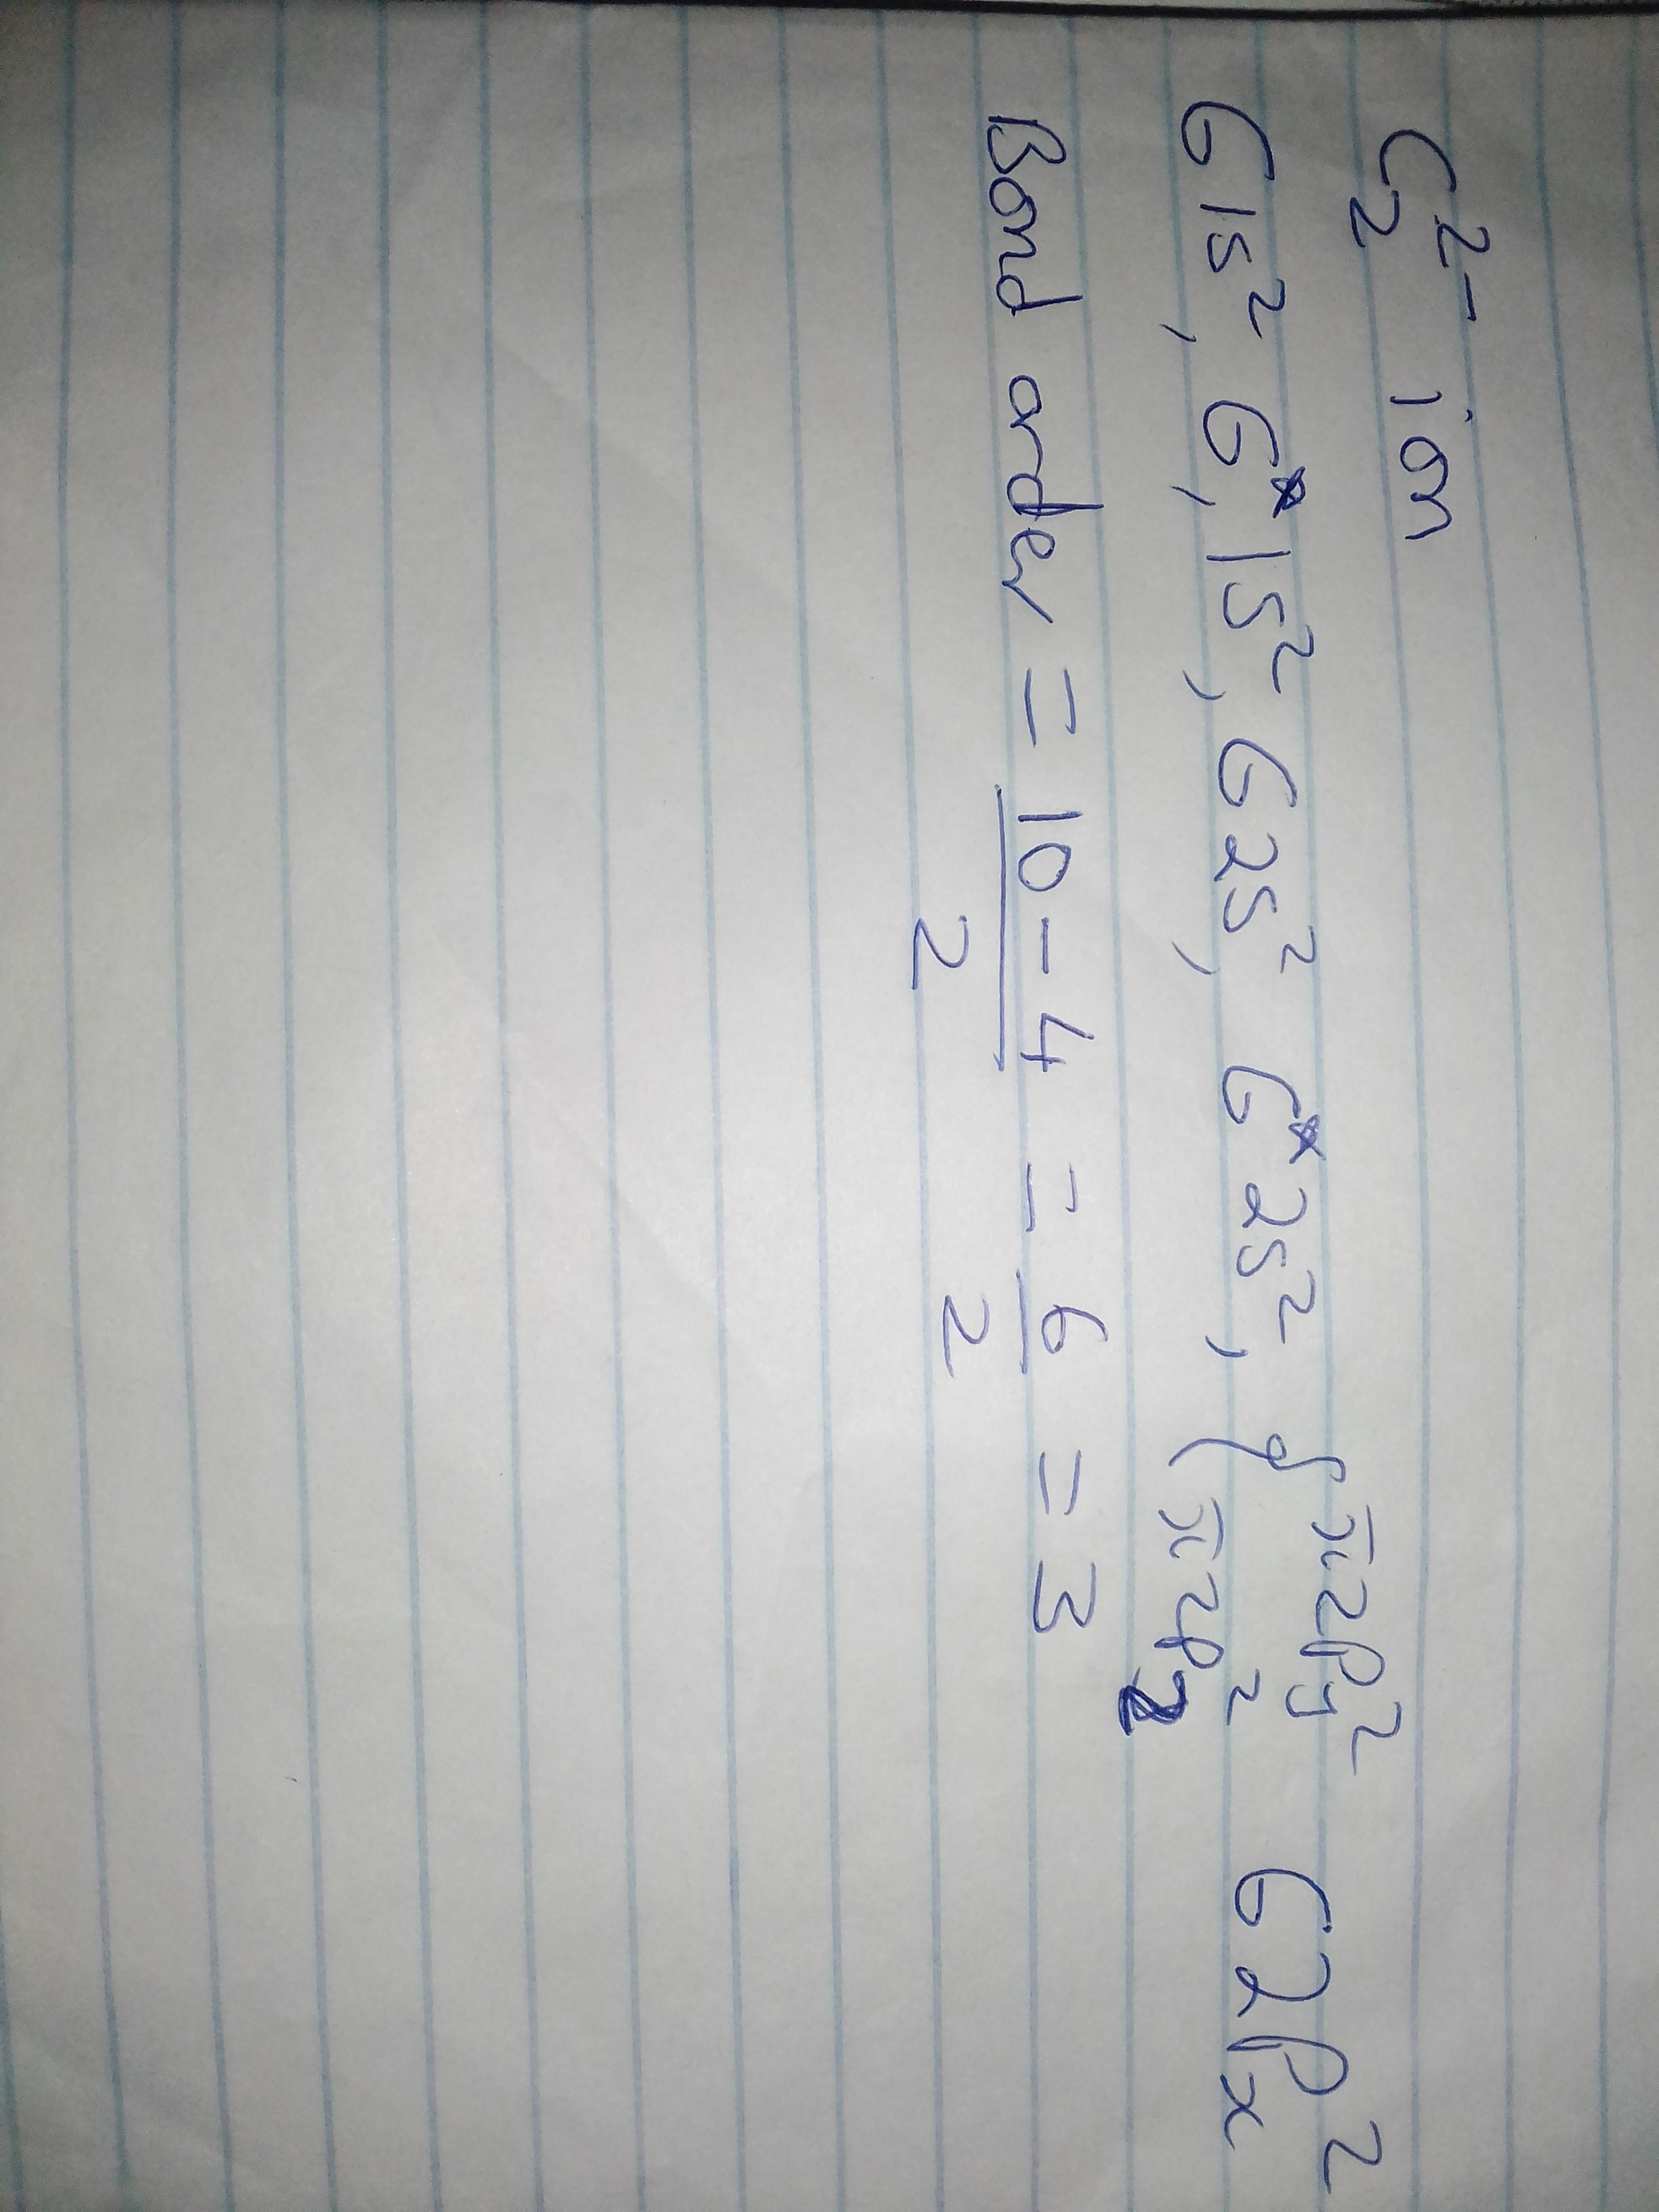 C₂²⁻ ion
σ1s², σ*, 1s², σ2s², σ*2s², { π2Py² π2P𝓏² σ2Px²
Bond order = 10-4/2 = 6/2 = 3